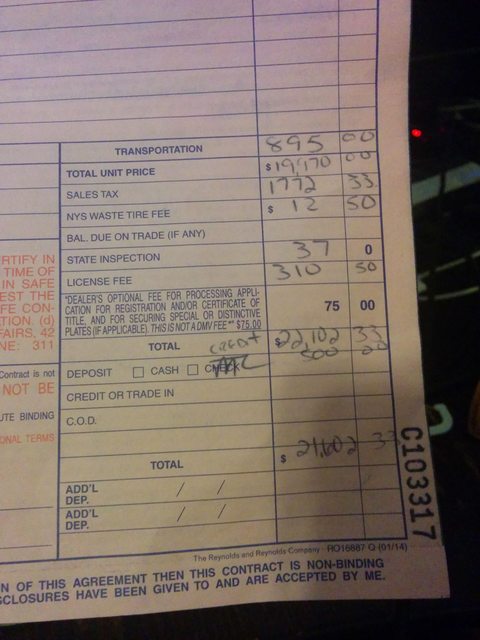 TRANSPORTATION 895 00
TOTAL UNIT PRICE $ 19,970 00
SALES TAX 1772 33
NYS WASTE TIRE FEE $ 12 50
BAL. DUE ON TRADE (IF ANY)
STATE INSPECTION 37 0
LICENSE FEE 310 50
"DEALER'S OPTIONAL FEE FOR PROCESSING APPLI-
CATION FOR REGISTRATION AND/OR CERTIFICATE OF
TITLE, AND FOR SECURING SPECIAL OR DISTINCTIVE
PLATES (IF APPLICABLE). THIS IS NOT A DMV FEE" $75.00 75 00
TOTAL $ 22,102 33
credit
DEPOSIT CASH CHECK MC 500 00
CREDIT OR TRADE IN
C.O.D.
TOTAL $ 21,602 33
ADD'L
DEP. / /
ADD'L
DEP. / /
The Reynolds and Reynolds Company RO16887 Q (01/14)
N OF THIS AGREEMENT THEN THIS CONTRACT IS NON-BINDING
SCLOSURES HAVE BEEN GIVEN TO AND ARE ACCEPTED BY ME.
C103317
ERTIFY IN
TIME OF
IN SAFE
EST THE
FE CON-
TION. (d)
FAIRS, 42
NE: 311
Contract is not
NOT BE
UTE BINDING
ONAL TERMS